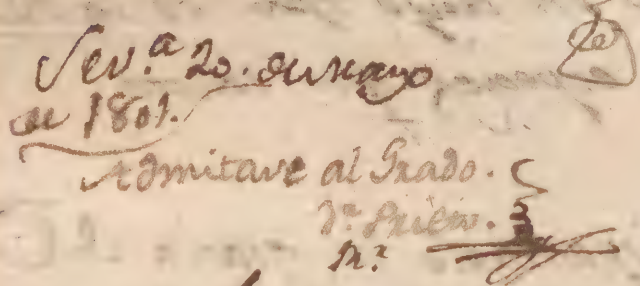 Sev.ª 20. de Mayo
de 1801.
Admitase al Grado.
D.r Prieto.